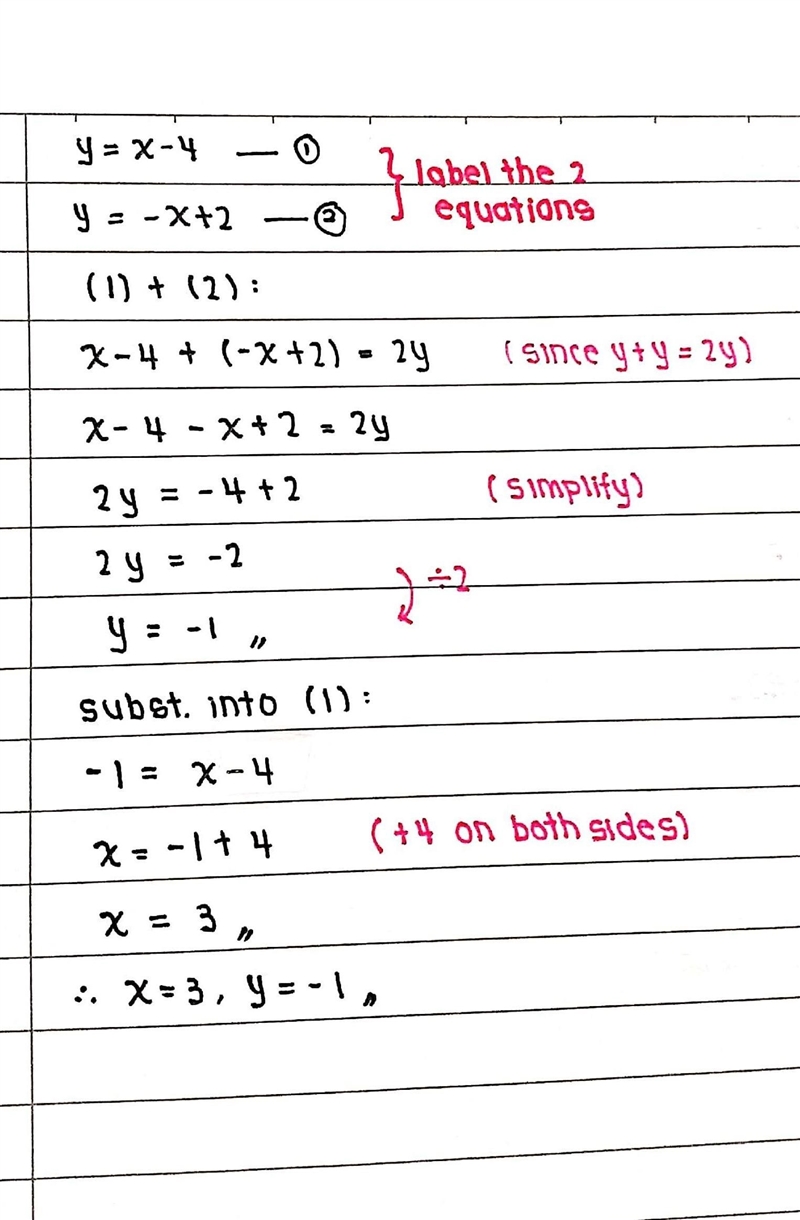 y = x - 4 — ①
y = -x + 2 — ②
} label the 2
equations
(1) + (2) :
x - 4 + (-x + 2) = 2y (since y + y = 2y)
x - 4 - x + 2 = 2y
2y = -4 + 2 (simplify)
2y = -2
÷2
y = -1 〃
subst. into (1) :
-1 = x - 4
x = -1 + 4 (+4 on both sides)
x = 3 〃
∴ x = 3, y = -1 〃